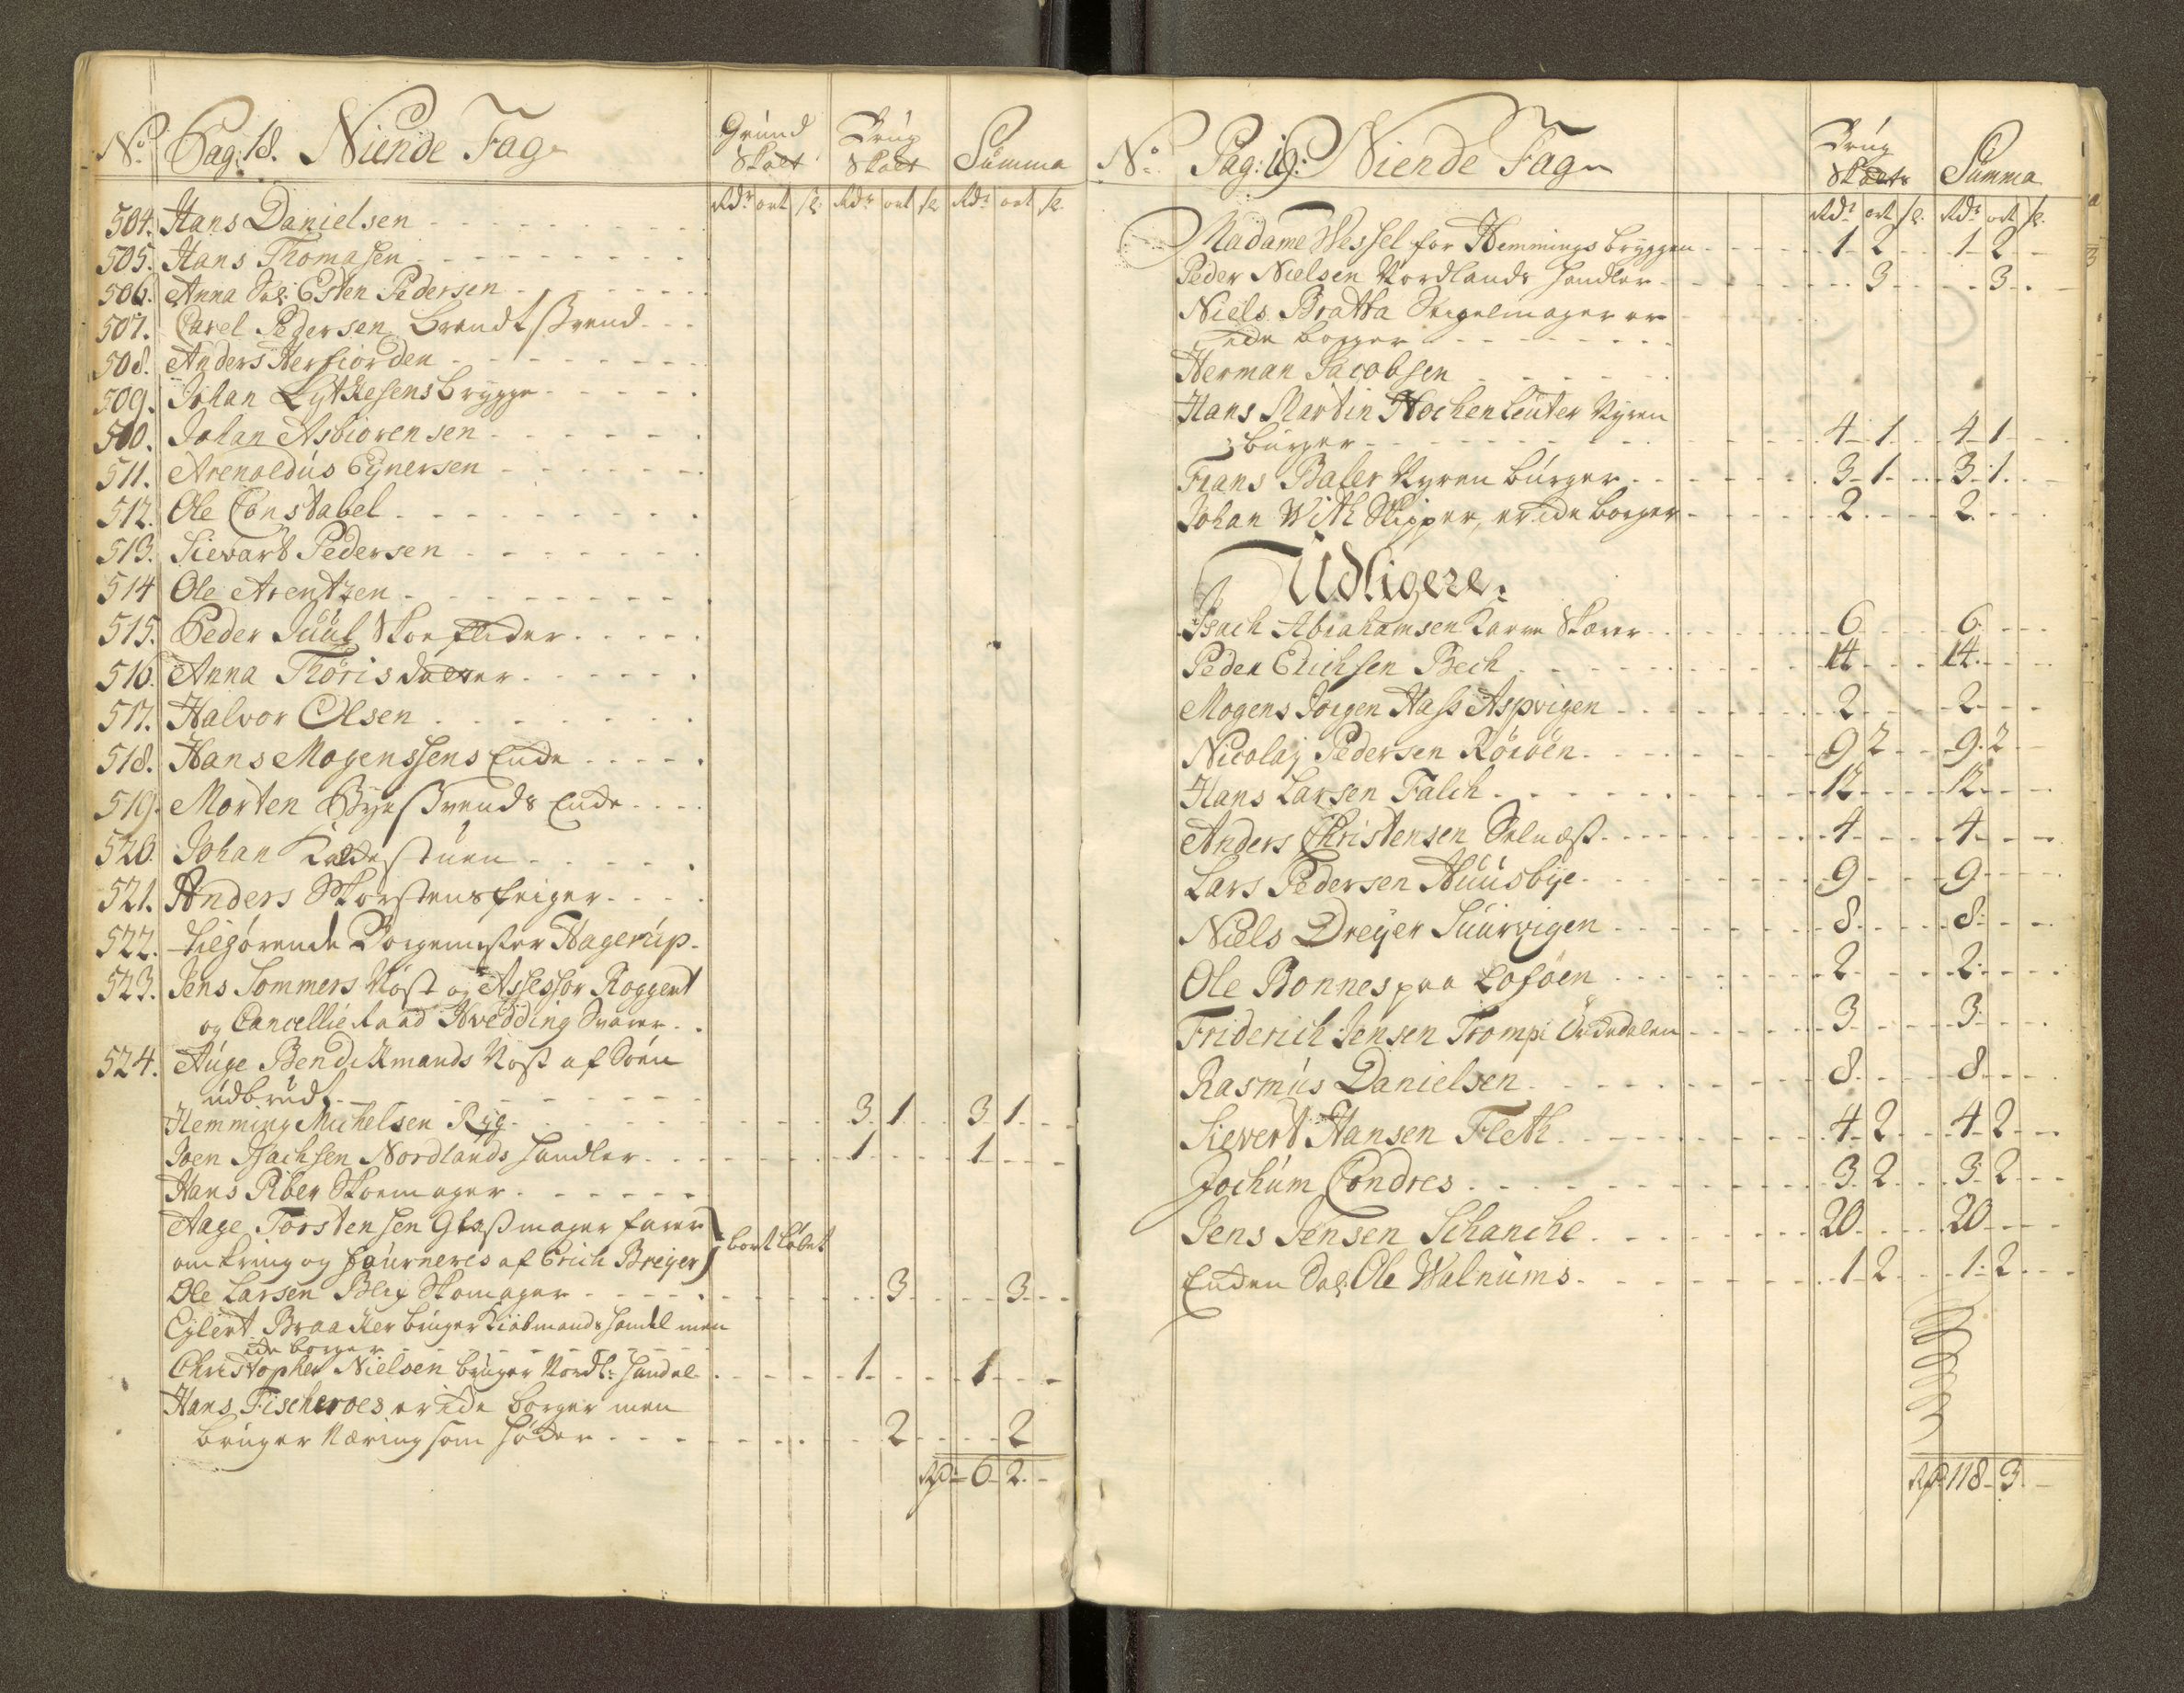 No Pag: 18. Niende Fag
Grund Skatt
Brug Skatt
Summa
Rdr ort sl. Rdr ort sl. Rdr ort sl.
504. Hans Danielsen
505. Hans Thomasen
506. Anna Sal: Esten Pedersen
507. Carel Pedersen Brendt Svend
508. Anders Herfiorden
509. Johan Lytkesens brygge
510. Johan Asbiørensen
511. Arenoldus Eynersen
512. Ole Constabel
513. Sievart Pedersen
514 Ole Arentzen
515. Peder Juul Skoeflider
516. Anna Thorisdatter
517. Halvor Olsen
518. Hans Mogenssens Enke
519. Morten Byesvends Enke
520. Johan Kaldestuen
521. Anders Skorstensfeiger
522. tilhørende Borgemester Hagerup
523. Jens Sommers Nøst og Assessor Roggert
og Cancellie Raad Hvedding Svarer
524. Auge Bendixmands Nøst af Søen
udbrudt
Hemming Michelsen Ryg 3 1 3 1
Joen Isachsen Nordlands handler 1 1
Hans Riber Skoemager
Aage Torstensen Glassmager farer
omkring og fourneres af Erich Breyer } bort løbet
Ole Larsen Blix Skomager 3 3
Eylert Braacker bruger Kiøbmands handel men
icke borger
Christopher Nielsen bruger Nordl: handel 1 1
Hans Fischeroes er icke borger men
bruger Næring som høker 2 2
Rdr 6 2
No Pag: 19: Niende Fag
Brug Skatt
Summa
Rdr ort sl. Rdr ort sl.
Madame Wessel for Hemmings bryggen 1 2 1 2
Peder Nielsen Nordlands handler 3 3
Niels Bratta Segelmager er
icke borger
Herman Jacobsen
Hans Martin Hochenleuter Nyren
burger 4 1 4 1
Frans Baler Nyren burger 3 1 3 1
Johan With Skipper, er icke borger 2 2
Udligere.
Isach Abrahamsen 6 6
Peder Erichsen Bech 14 14
Mogens Jørgen Hass Aspvigen 2 2
Nicolaj Pedersen Röröen 9 2 9 2
Hans Larsen Falch 12 12
Anders Christensen Selnæss 4 4
Lars Pedersen Huusbye 9 9
Niels Dreyer Suurvigen 8 8
Ole Bonnes paa Lofoen 2 2
Friderich Jensen Tromp i Ørckedalen 3 3
Rasmus Danielsen 8 8
Sievert Hansen Fleth 4 2 4 2
Jochum Condres 3 2 3 2
Jens Jensen Schanche 20 20
Encken Sal: Ole Walnums 1 2 1 2
Rdr 118 3